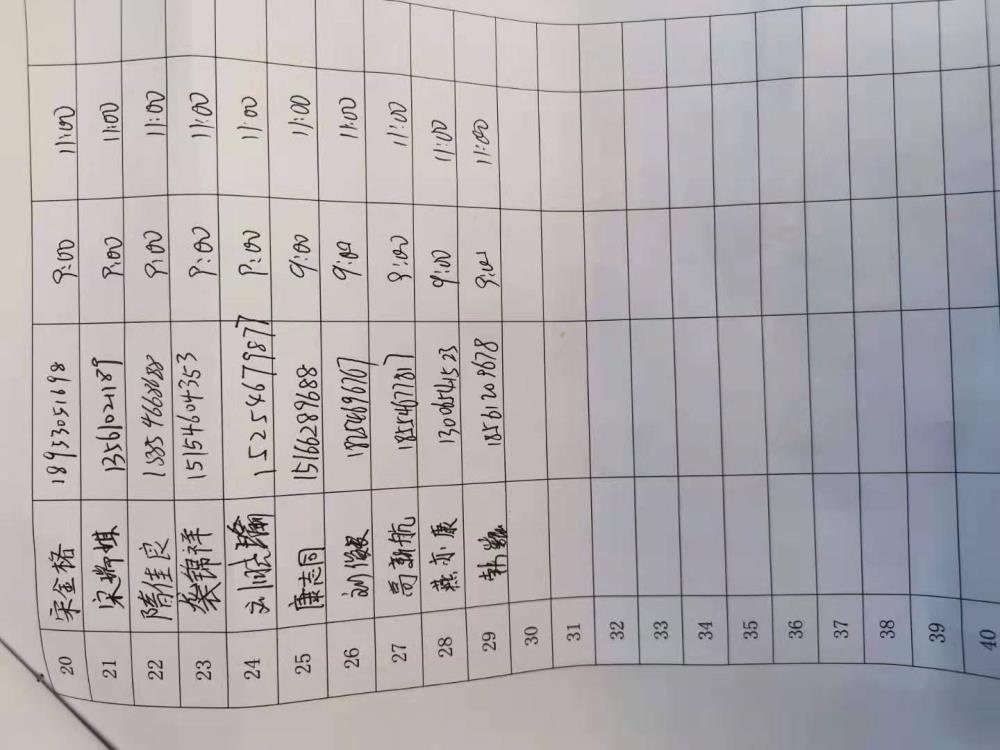 20 宋金格 18933051698 9:00 11:00
21 13561021189 9:00 11:00
22 隋佳良 9:00 11:00
23 龚锦祥 15154604353 9:00 11:00
24 15254679877 9:00 11:00
25 康志同 15166289688 9:00 11:00
26 18254696767 9:00 11:00
27 高新航 18554677817 9:00 11:00
28 燕亦康 13006541523 9:00 11:00
29 18561209678 9:00 11:00
30
31
32
33
34
35
36
37
38
39
40